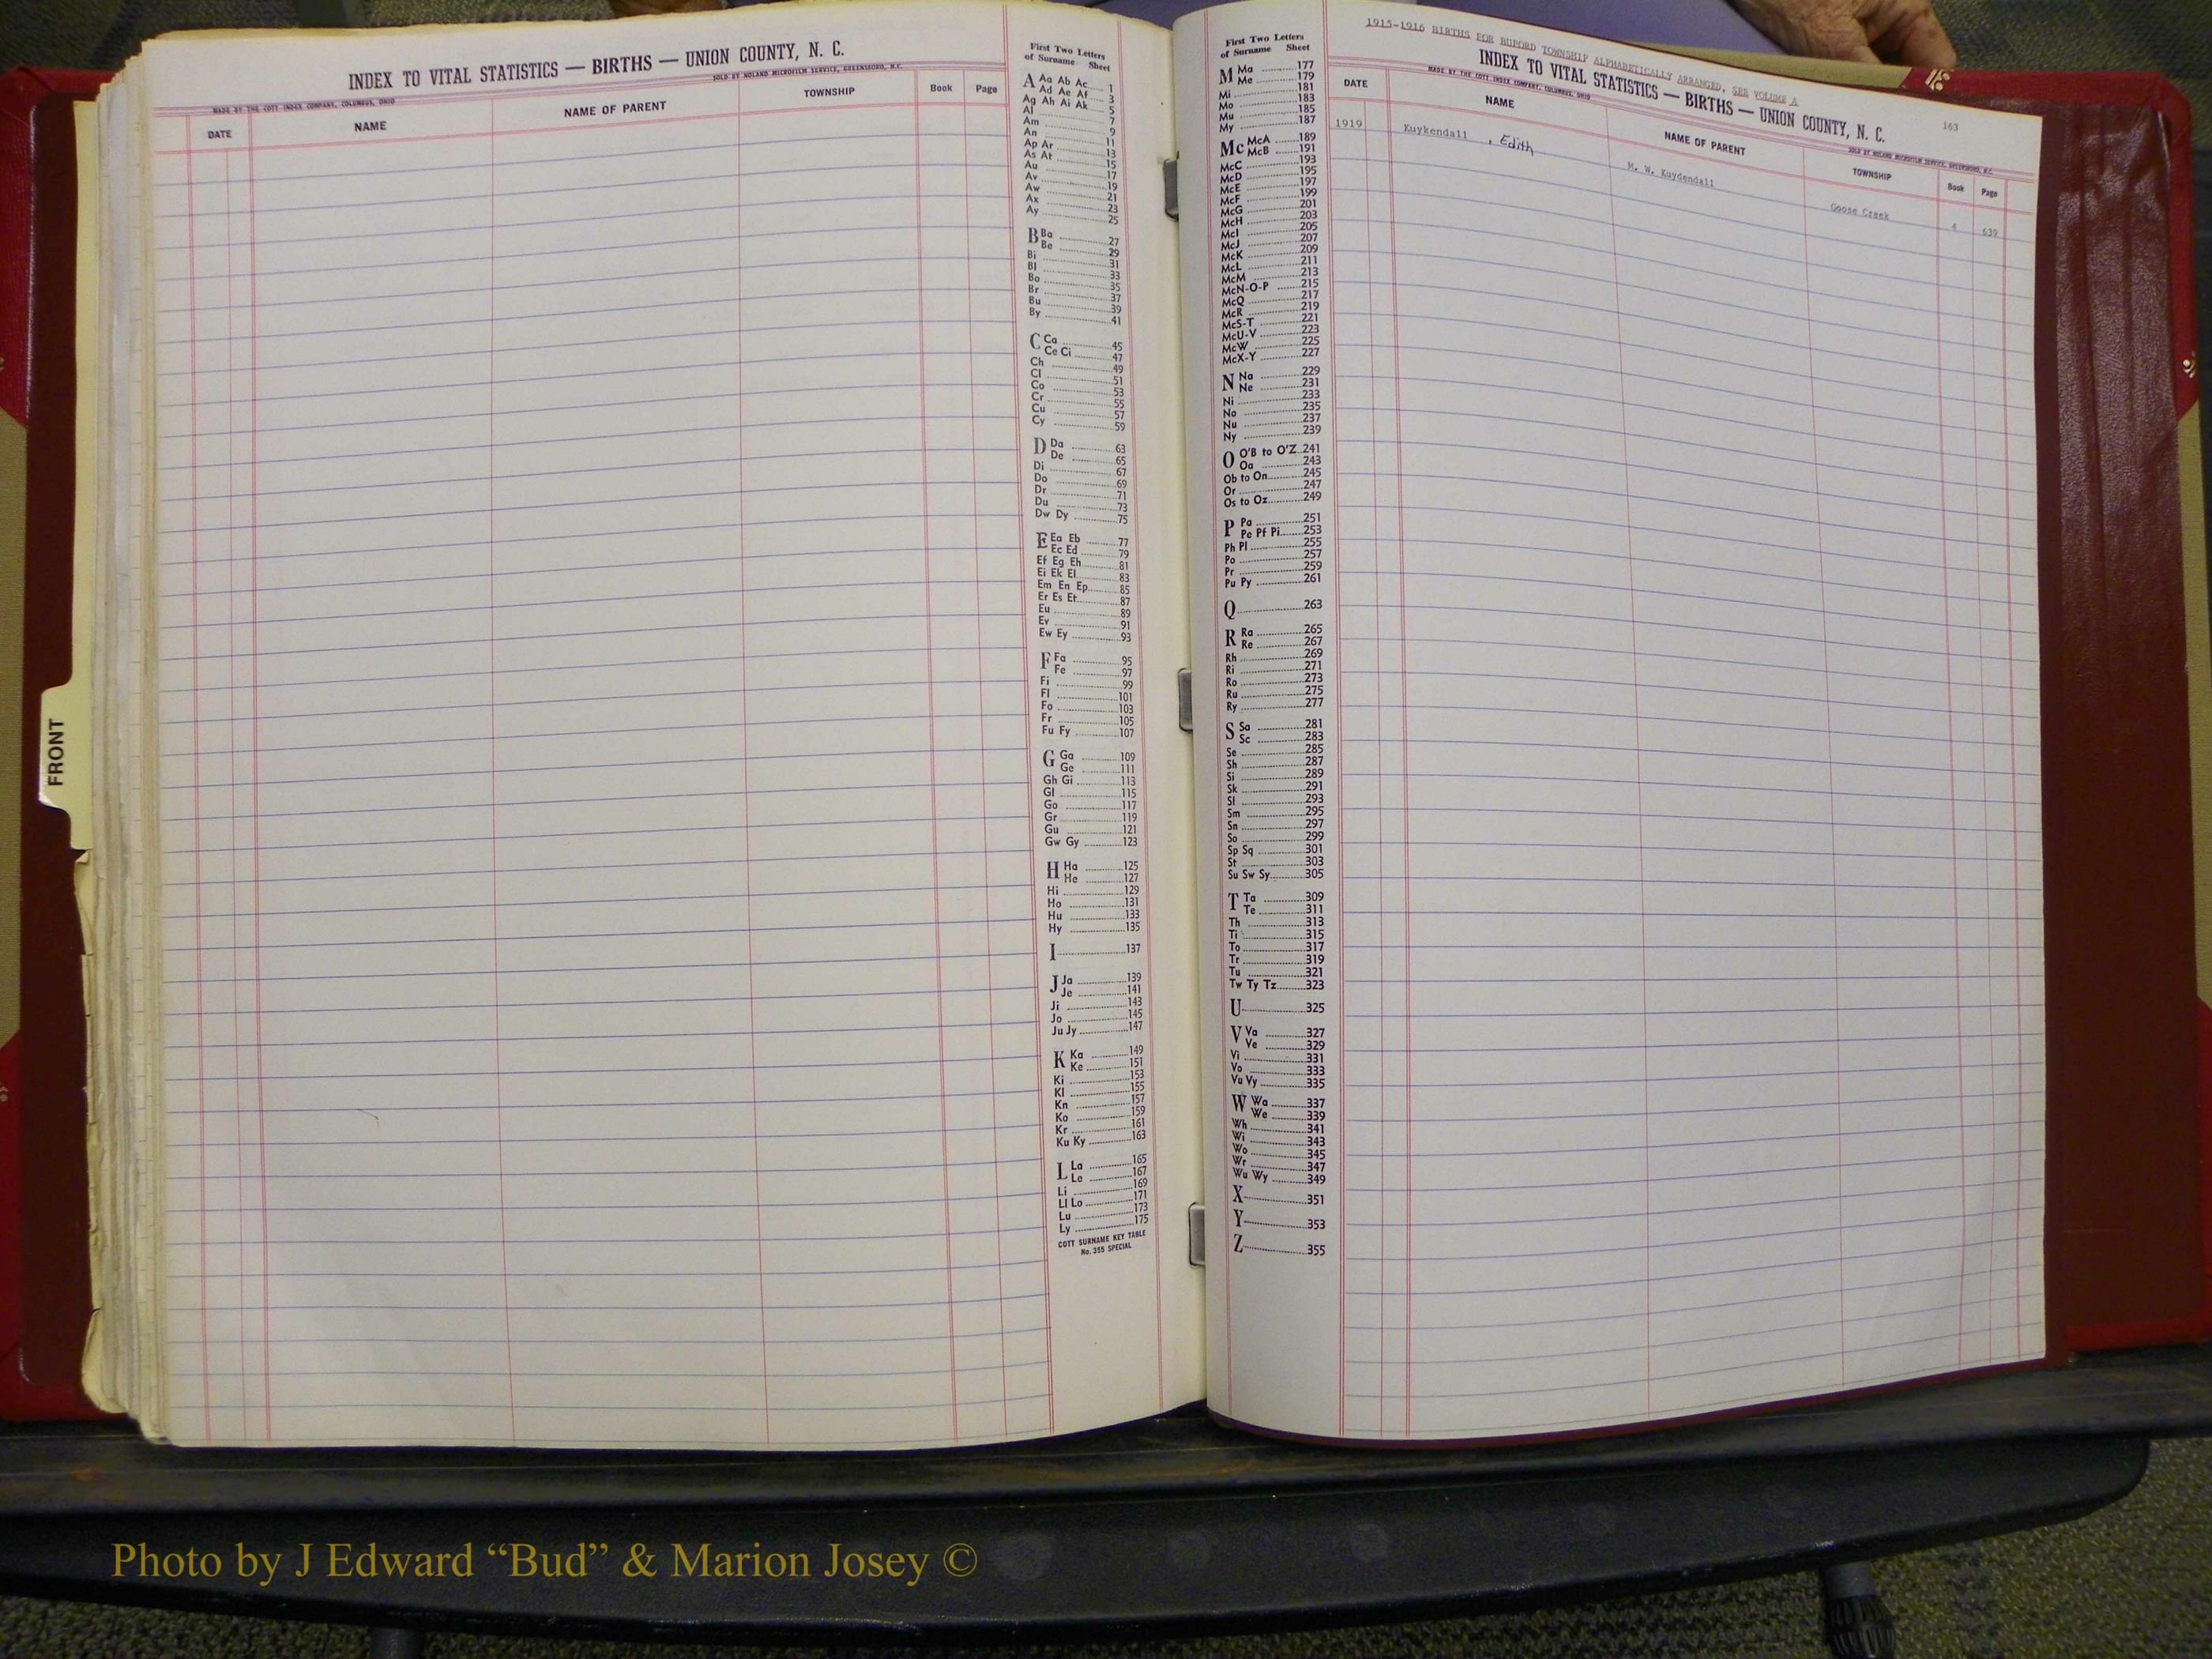 INDEX TO VITAL STATISTICS — BIRTHS — UNION COUNTY, N. C.
MADE BY THE COTT INDEX COMPANY, COLUMBUS, OHIO
SOLD BY NOLAND MICROFILM SERVICE, GREENSBORO, N.C.
DATE NAME NAME OF PARENT TOWNSHIP Book Page
FRONT
First Two Letters
of Surname Sheet
A Aa Ab Ac 1
Ad Ae Af 3
Ag Ah Ai Ak 5
Al 7
Am 9
An 11
Ap Ar 13
As At 15
Au 17
Av 19
Aw 21
Ax 23
Ay 25
B Ba 27
Be 29
Bi 31
Bl 33
Bo 35
Br 37
Bu 39
By 41
C Ca 45
Ce Ci 47
Ch 49
Cl 51
Co 53
Cr 55
Cu 57
Cy 59
D Da 63
De 65
Di 67
Do 69
Dr 71
Du 73
Dw Dy 75
E Ea Eb 77
Ec Ed 79
Ef Eg Eh 81
Ei Ek El 83
Em En Ep 85
Er Es Et 87
Eu 89
Ev 91
Ew Ey 93
F Fa 95
Fe 97
Fi 99
Fl 101
Fo 103
Fr 105
Fu Fy 107
G Ga 109
Ge 111
Gh Gi 113
Gl 115
Go 117
Gr 119
Gu 121
Gw Gy 123
H Ha 125
He 127
Hi 129
Ho 131
Hu 133
Hy 135
I 137
J Ja 139
Je 141
Ji 143
Jo 145
Ju Jy 147
K Ka 149
Ke 151
Ki 153
Kl 155
Kn 157
Ko 159
Kr 161
Ku Ky 163
L La 165
Le 167
Li 169
Ll Lo 171
Lu 173
Ly 175
COTT SURNAME KEY TABLE
No. 355 SPECIAL
First Two Letters
of Surname Sheet
M Ma 177
Me 179
Mi 181
Mo 183
Mu 185
My 187
Mc McA 189
McB 191
McC 193
McD 195
McE 197
McF 199
McG 201
McH 203
McI 205
McJ 207
McK 209
McL 211
McM 213
McN-O-P 215
McQ 217
McR 219
McS-T 221
McU-V 223
McW 225
McX-Y 227
N Na 229
Ne 231
Ni 233
No 235
Nu 237
Ny 239
O O'B to O'Z 241
Oa 243
Ob to On 245
Or 247
Os to Oz 249
P Pa 251
Pe Pf Pi 253
Ph Pl 255
Po 257
Pr 259
Pu Py 261
Q 263
R Ra 265
Re 267
Rh 269
Ri 271
Ro 273
Ru 275
Ry 277
S Sa 281
Sc 283
Se 285
Sh 287
Si 289
Sk 291
Sl 293
Sm 295
Sn 297
So 299
Sp Sq 301
St 303
Su Sw Sy 305
T Ta 309
Te 311
Th 313
Ti 315
To 317
Tr 319
Tu 321
Tw Ty Tz 323
U 325
V Va 327
Ve 329
Vi 331
Vo 333
Vu Vy 335
W Wa 337
We 339
Wh 341
Wi 343
Wo 345
Wr 347
Wu Wy 349
X 351
Y 353
Z 355
1915-1916 BIRTHS FOR BUFORD TOWNSHIP ALPHABETICALLY ARRANGED, SEE VOLUME A
INDEX TO VITAL STATISTICS — BIRTHS — UNION COUNTY, N. C. 163
MADE BY THE COTT INDEX COMPANY, COLUMBUS, OHIO
SOLD BY NOLAND MICROFILM SERVICE, GREENSBORO, N.C.
DATE NAME NAME OF PARENT TOWNSHIP Book Page
1919 Kuykendall , Edith M. W. Kuydendall Goose Creek 4 639
Photo by J Edward “Bud” & Marion Josey ©